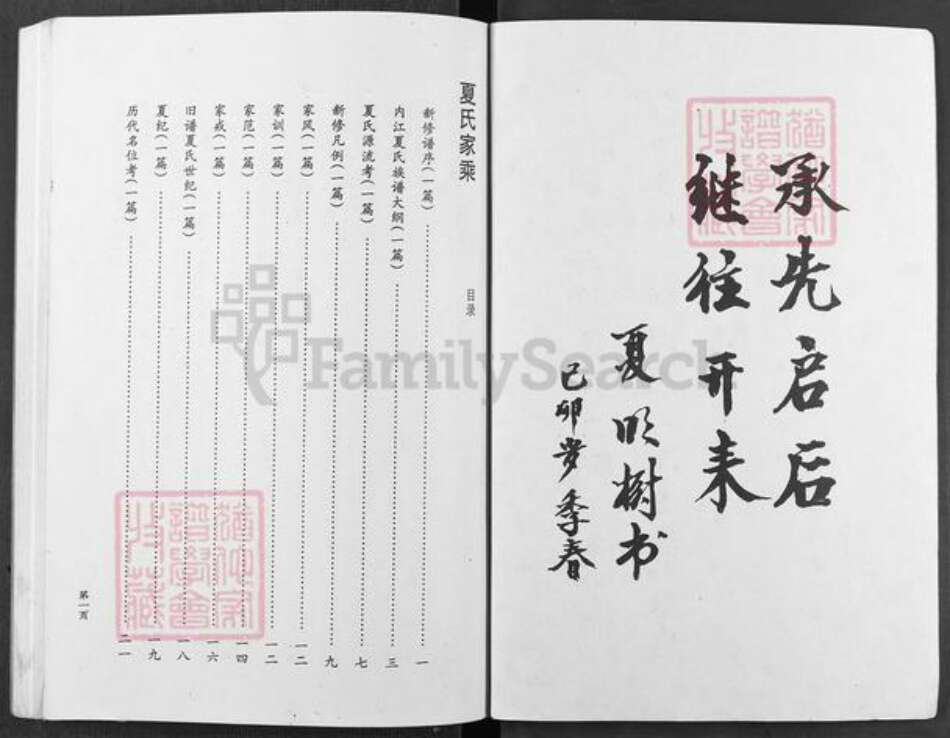 承先启后
继往开来
夏明树书
己卯岁季春
夏氏家乘 目录
新修谱序(一篇)……一
内江夏氏族谱大纲(一篇)……三
夏氏源流考(一篇)……七
新修凡例(一篇)……九
家风(一篇)……一二
家训(一篇)……一二
家范(一篇)……一四
家戒(一篇)……一六
旧谱夏氏世纪(一篇)……一八
夏纪(一篇)……一九
历代名位考(一篇)……二一
第一页
FamilySearch